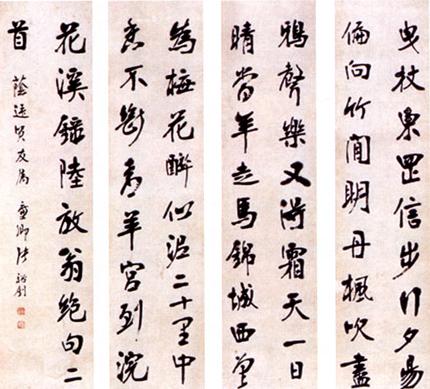 曳杖東罡信步行夕昜
偏向竹間明丹楓吹盡
鴉聲樂又得霜天一日
晴當年走馬錦城西曾
為梅花醉似泥二十里中
香不斷青羊宮到浣
花溪錄陸放翁絕句二
首 蔭 賢友屬 廉卿張裕釗